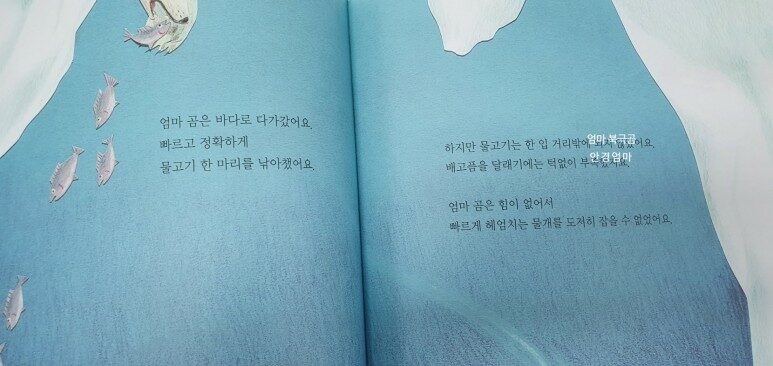 엄마 곰은 바다로 다가갔어요.
빠르고 정확하게
물고기 한 마리를 낚아챘어요.
하지만 물고기는 한 입 거리밖에
배고픔을 달래기에는 턱없이
엄마 곰은 힘이 없어서
빠르게 헤엄치는 물개를 도저히 잡을 수 없었어요.
엄마 북극곰
안경엄마